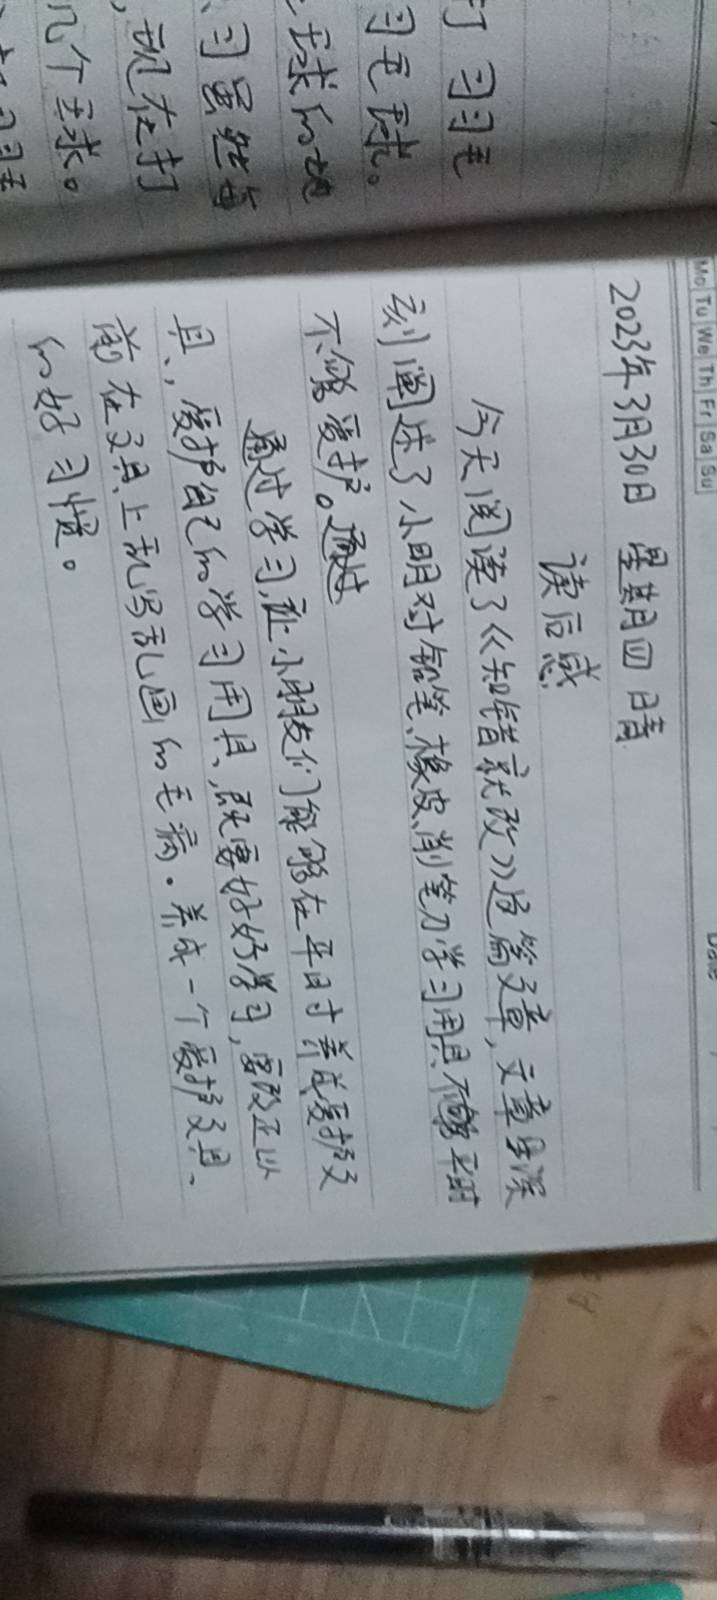 打 习习毛
习毛球。
毛球的地
习虽然有
,现在打
几个球。
Mo Tu We Th Fr Sa Su
Date
2023年3月30日 星期四 晴
读后感
今天阅读了《知错就改》这篇文章,文章里深
刻阐述了小明对铅笔、橡皮、削笔刀学习用具平时
不够爱护。通过
通过学习,让小朋友们能够在平日寸养成爱护文
具、爱护自己的学习用具、既要好好学习,要改正以
前在文具上乱写乱画的毛病.养成一个爱护文具、
的好习惯。